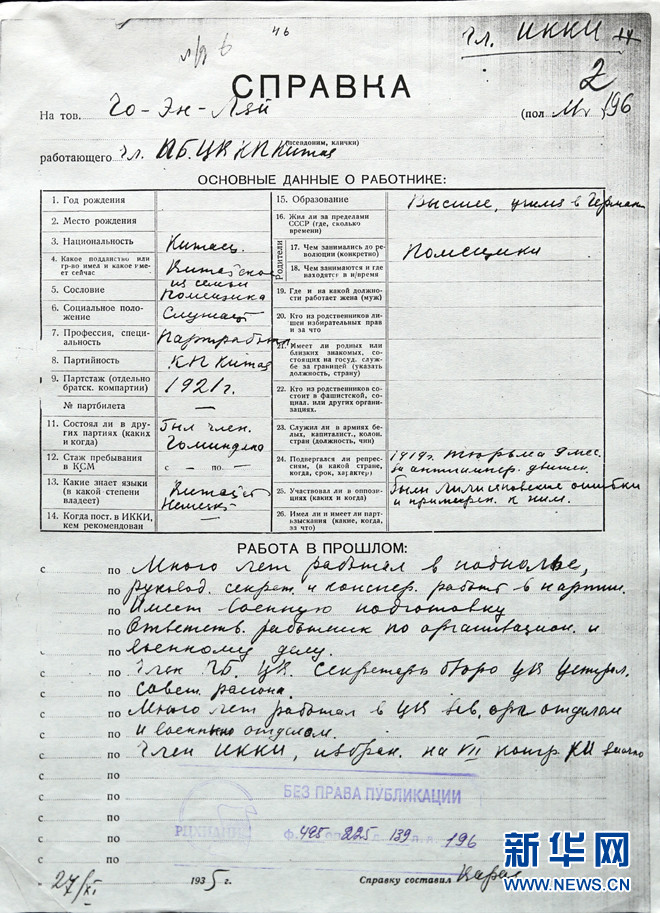 46
Чл. ИККИ
2
СПРАВКА
На тов. Чо-Эн-Лай (пол М) 196
(псевдоним, клички)
работающего Чл. П.Б. ЦК КП Китая
ОСНОВНЫЕ ДАННЫЕ О РАБОТНИКЕ:
1. Год рождения
2. Место рождения
3. Национальность Китаец
4. Какое подданство или гр-во имел и какое имеет сейчас Китайское
5. Сословие из семьи помещика
6. Социальное положение Служащ
7. Профессия, специальность Партработн
8. Партийность КП Китая
9. Партстаж (отдельно братск. компартии) 1921 г.
№ партбилета —
11. Состоял ли в других партиях (каких и когда) Был член. Гоминдана
12. Стаж пребывания в КСМ с — по —
13. Какие знает языки (в какой степени владеет) Китайск Немецк
14. Когда пост. в ИККИ, кем рекомендован
15. Образование Высшее, учился в Герман
16. Жил ли за пределами СССР (где, сколько времени)
Родители
17. Чем занимались до революции (конкретно) Помещики
18. Чем занимаются и где находятся в н/время
19. Где и на какой должности работает жена (муж)
20. Кто из родственников лишен избирательных прав и за что
21. Имеет ли родных или близких знакомых, состоящих на госуд. службе за границей (указать должность, страну)
22. Кто из родственников состоит в фашистской, социал. или других организациях.
23. Служил ли в армиях белых, капиталист., колон. стран (должность, чин)
24. Подвергался ли репрессиям, (в какой стране, когда, срок, характер) 1919 г. тюрьма 9 мес. за антиимпер. движен.
25. Участвовал ли в оппозициях (каких и когда) были лилисановские ошибки и примирен. к ним.
26. Имел ли и имеет ли партвзыскания (какие, когда, за что)
РАБОТА В ПРОШЛОМ:
с по Много лет работал в подполье,
по руковод. секрет. и конспир. работ в партии.
с по Имеет военную подготовку
с по Ответств. работник по организацион. и
с по военному делу.
с по Член П.Б. ЦК. Секретарь бюро ЦК Централ.
с по совет. района.
с по Много лет работал в ЦК зав. орг отделом
с по и военным отделом.
с по Член ИККИ, избран. на VII конгр КИ заочно
с по
с по
с по
с по
с по
БЕЗ ПРАВА ПУБЛИКАЦИИ
РЦХИДНИ
ф. 495 оп. 225 д. 139 л.л. 196
27/XI 1935 г. Справку составил
新华网
WWW.NEWS.CN